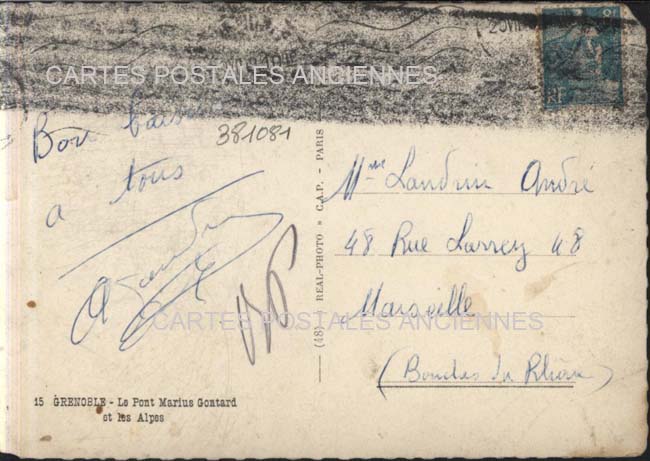 CARTES POSTALES ANCIENNES
Bon baiser
a tous
381081
15 GRENOBLE - Le Pont Marius Gontard
et les Alpes
(48) REAL-PHOTO • C.A.P. - PARIS
Mme Landrin André
48 Rue Larrey 48
Marseille
(Bouches du Rhône)
CARTES POSTALES ANCIENNES